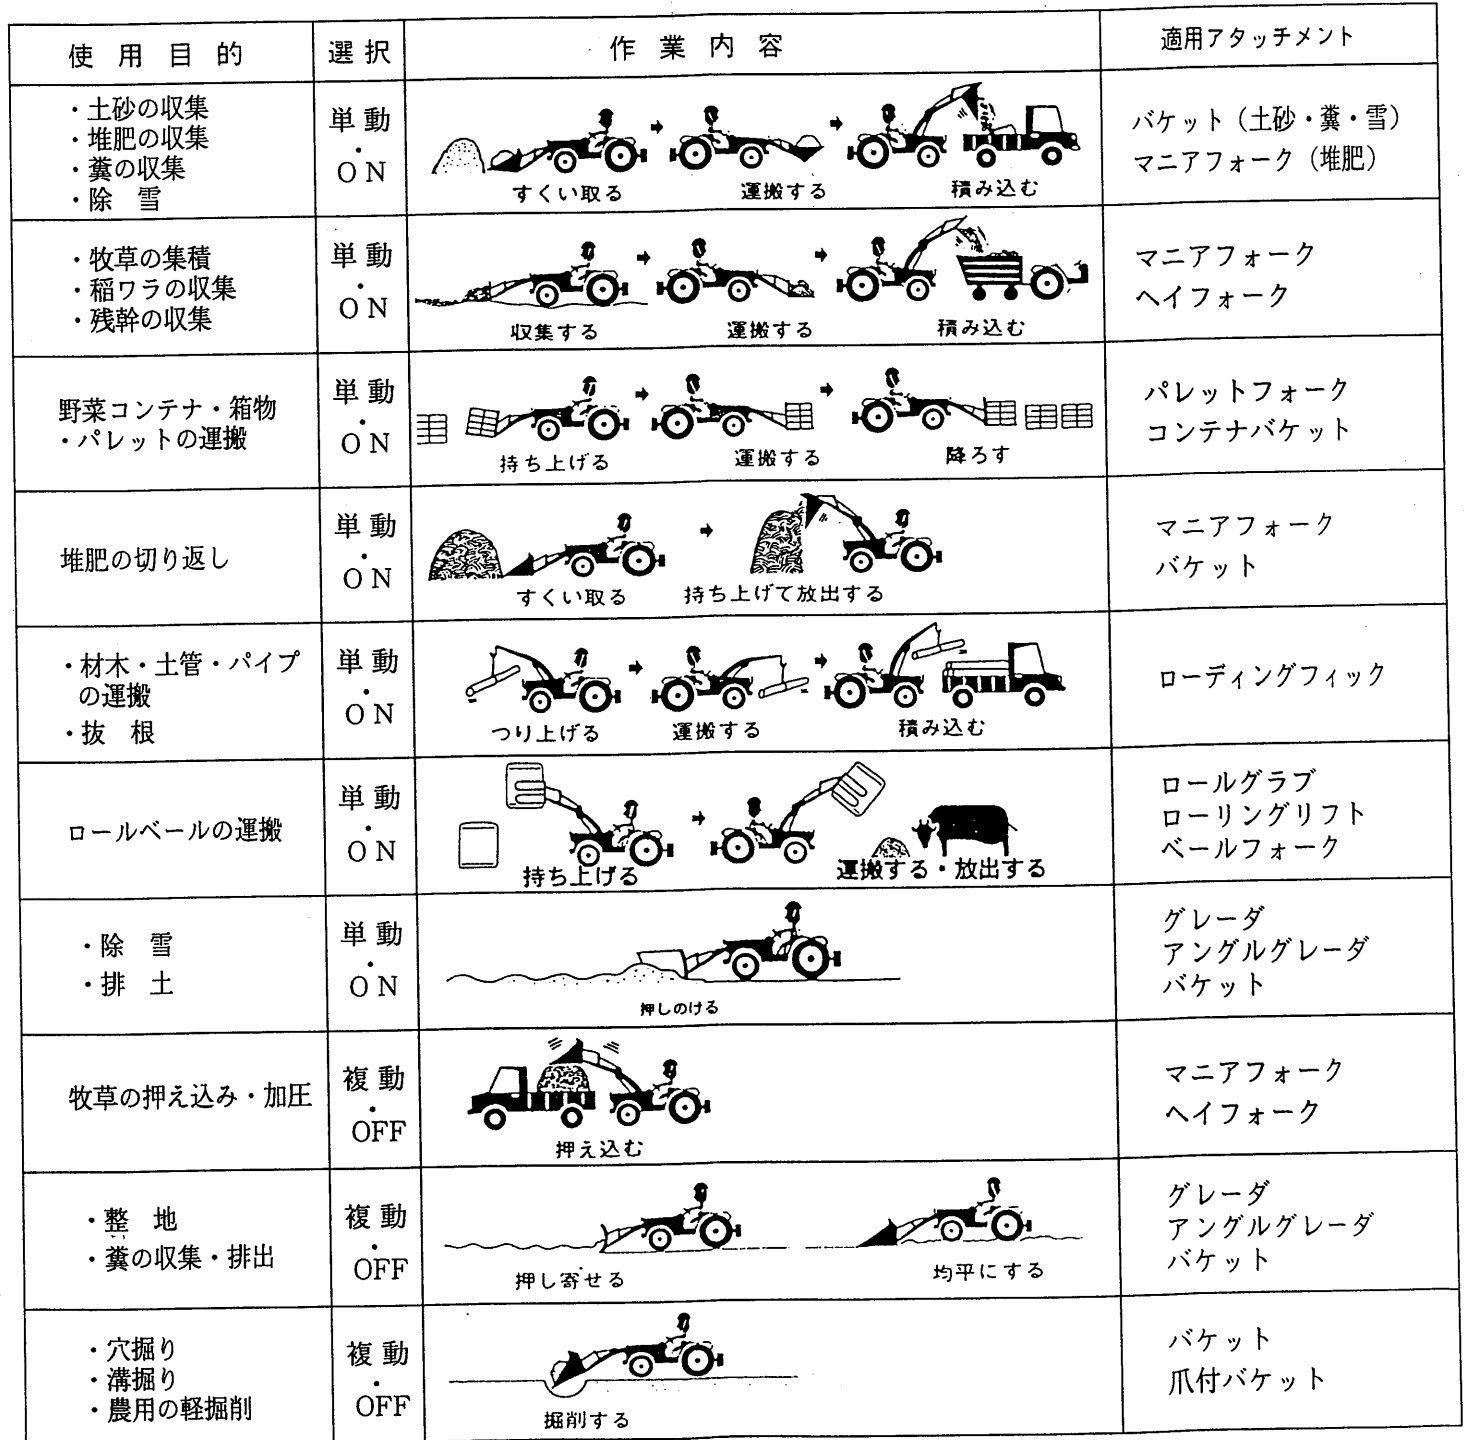 使用目的
選択
作業内容
適用アタッチメント
・土砂の収集
・堆肥の収集
・糞の収集
・除 雪
単動
・
ON
すくい取る
運搬する
積み込む
バケット（土砂・糞・雪）
マニアフォーク（堆肥）
・牧草の集積
・稲ワラの収集
・残幹の収集
単動
・
ON
収集する
運搬する
積み込む
マニアフォーク
ヘイフォーク
野菜コンテナ・箱物
・パレットの運搬
単動
・
ON
持ち上げる
運搬する
降ろす
パレットフォーク
コンテナバケット
堆肥の切り返し
単動
・
ON
すくい取る
持ち上げて放出する
マニアフォーク
バケット
・材木・土管・パイプ
の運搬
・抜 根
単動
・
ON
つり上げる
運搬する
積み込む
ローディングフィック
ロールベールの運搬
単動
・
ON
持ち上げる
運搬する・放出する
ロールグラブ
ローリングリフト
ベールフォーク
・除 雪
・排 土
単動
・
ON
押しのける
グレーダ
アングルグレーダ
バケット
牧草の押え込み・加圧
複動
・
OFF
押え込む
マニアフォーク
ヘイフォーク
・整 地
・糞の収集・排出
複動
・
OFF
押し寄せる
均平にする
グレーダ
アングルグレーダ
バケット
・穴掘り
・溝掘り
・農用の軽掘削
複動
・
OFF
掘削する
バケット
爪付バケット